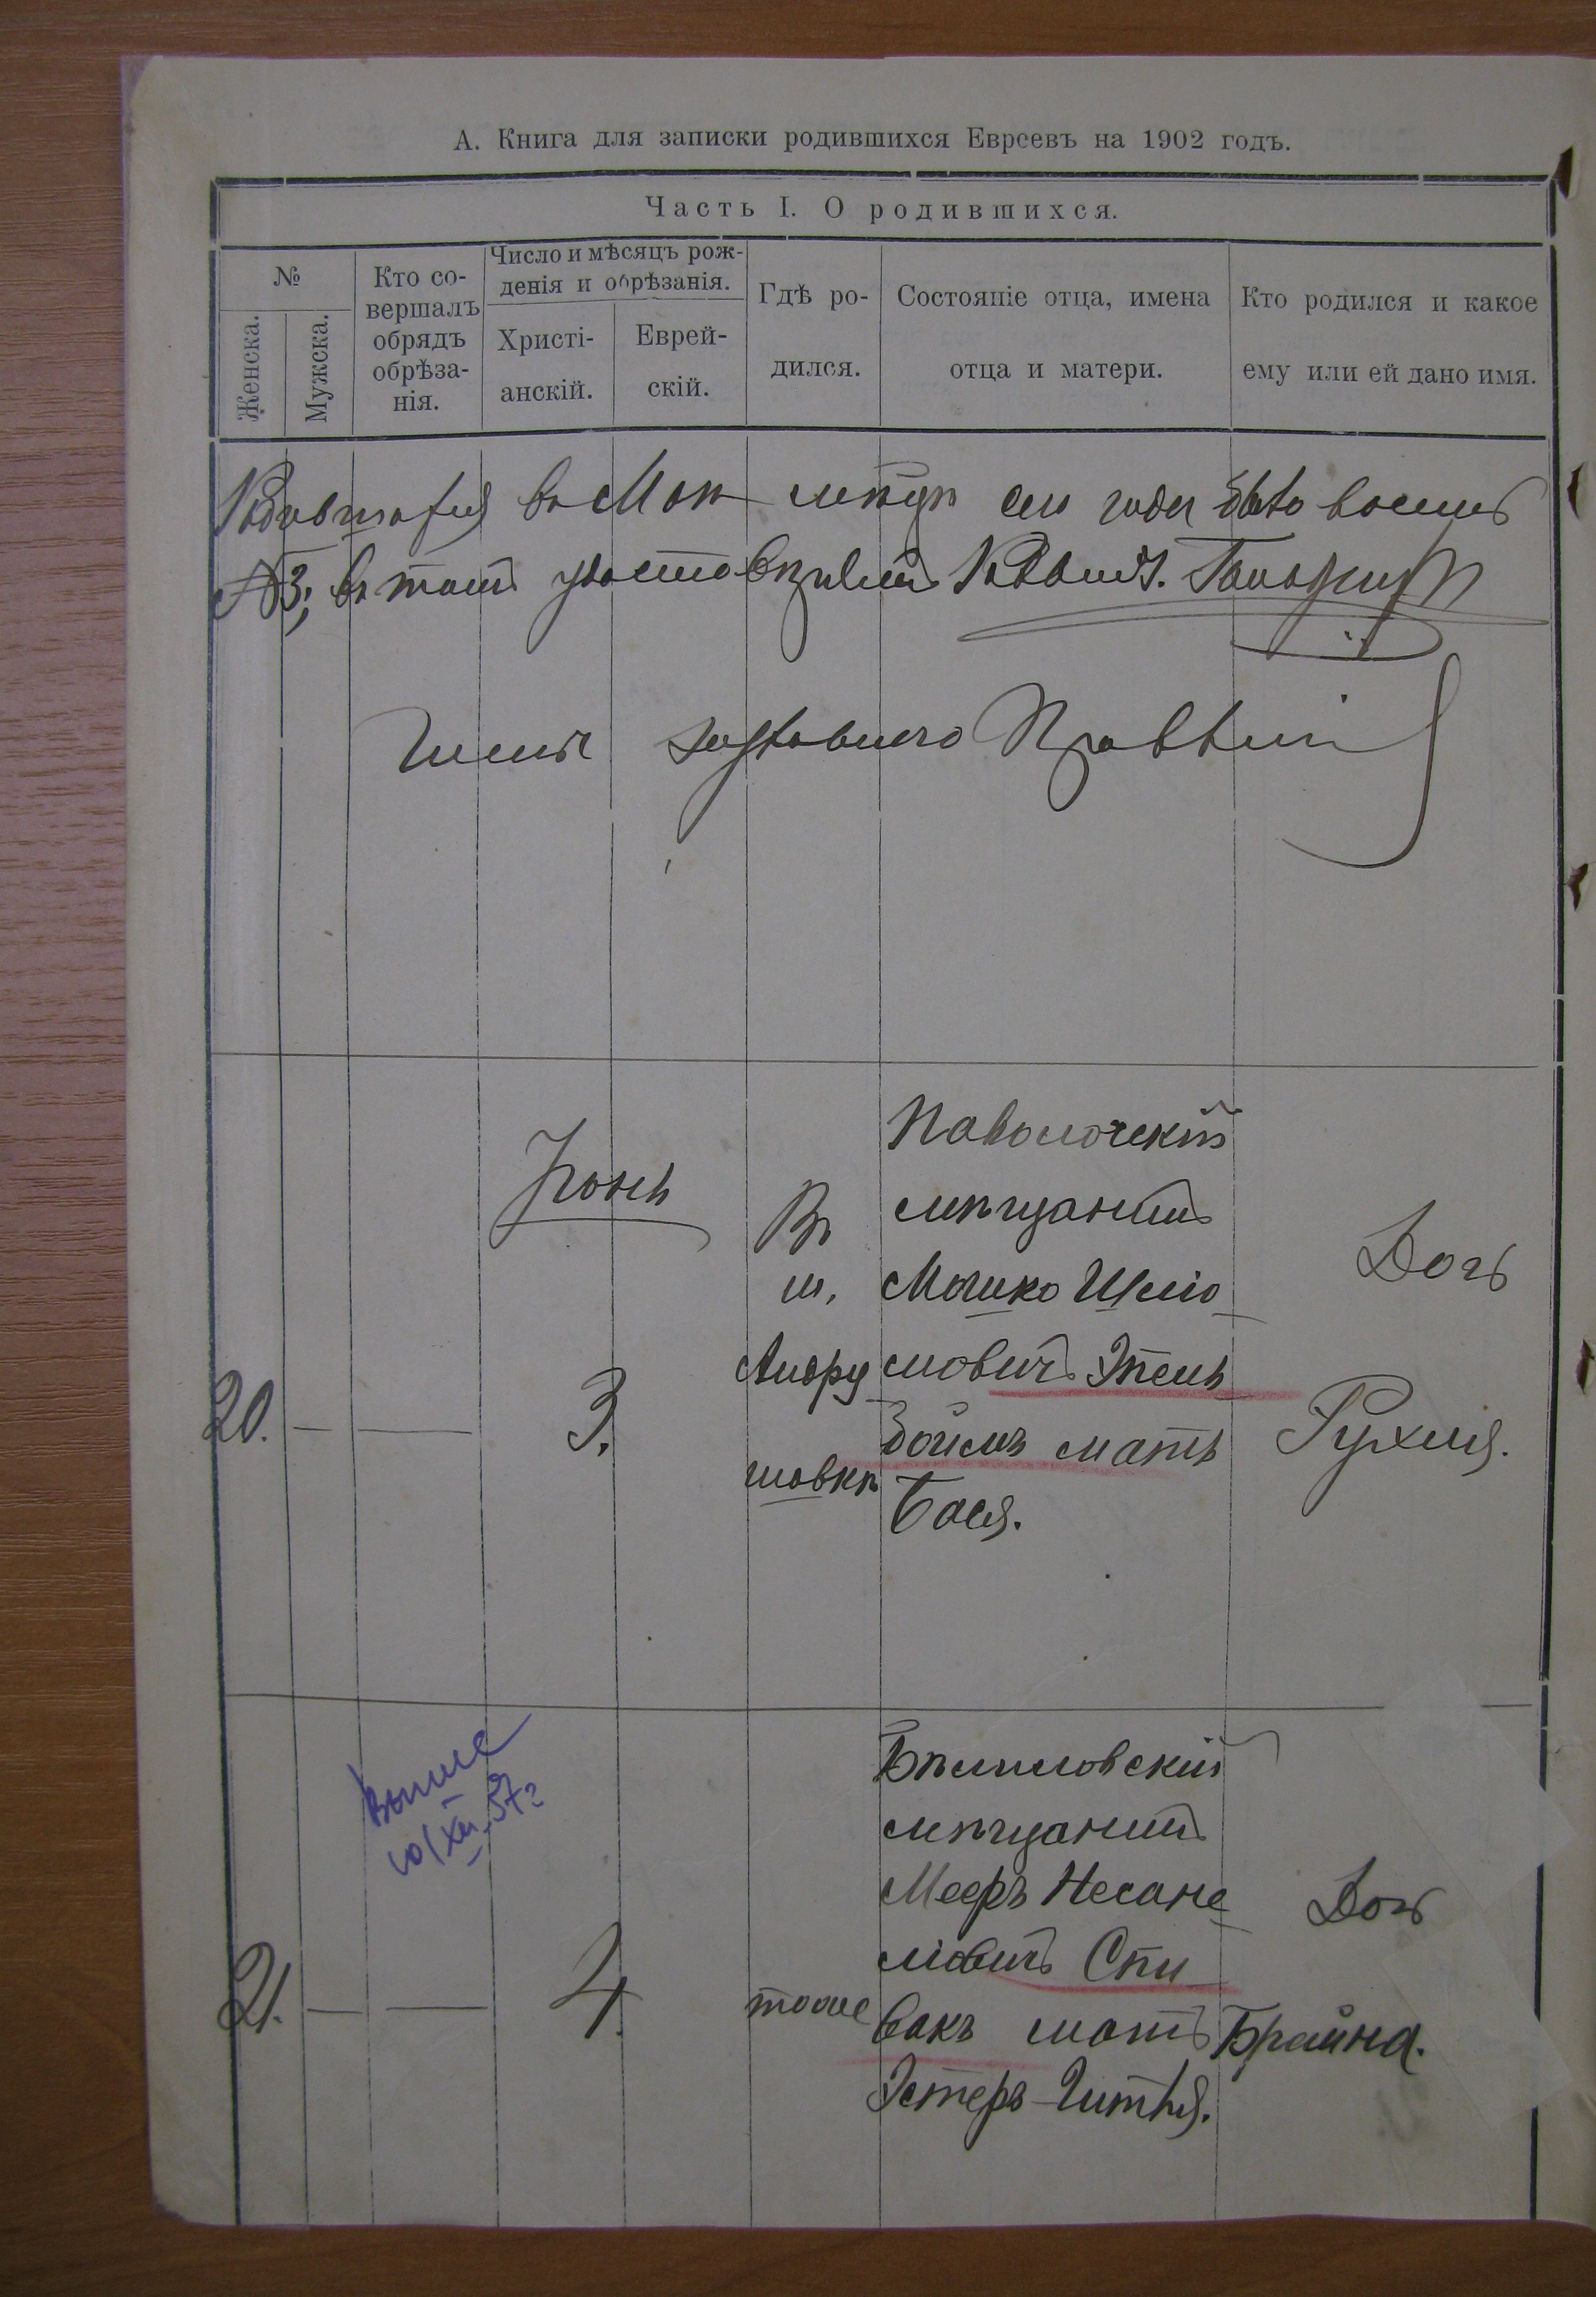 А. Книга для записки родившихся Евреевъ на 1902 годъ.
Часть I. О родившихся.
№
Женска.
Мужска.
Кто со-
вершалъ
обрядъ
обрѣза-
нія.
Число и мѣсяцъ рож-
денія и обрѣзанія.
Христі-
анскій.
Еврей-
скій.
Гдѣ ро-
дился.
Состояніе отца, имена
отца и матери.
Кто родился и какое
ему или ей дано имя.
въ Маѣ мѣсяцѣ сего года было восемь
въ томъ
Іюнь
20.
—
—
3.
Въ
м.
Андру
шовкѣ
Паволочскій
мѣщанинъ
Мошко Шліо
мовичъ
мать
Бася.
Дочь
Рухля.
21.
—
—
4.
тоже
Бѣлиловскій
мѣщанинъ
Мееръ Несане
ліовичъ Спи
вакъ мать
Эстеръ-Гитля.
Дочь
Брайна.